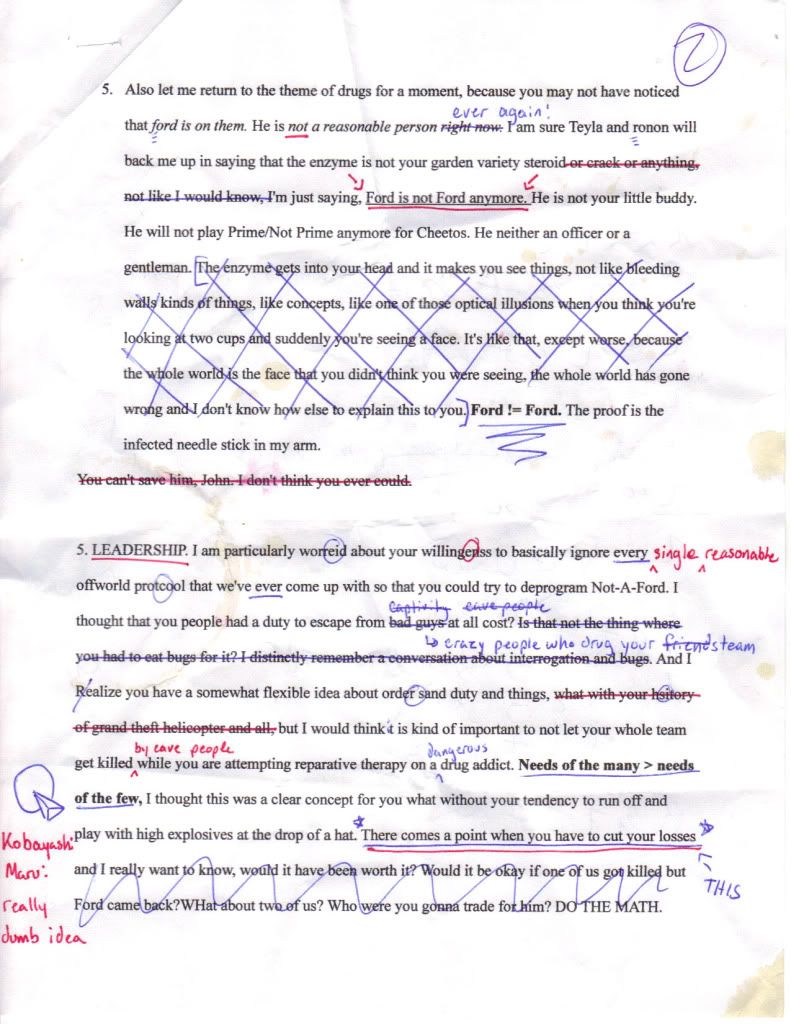 2
5. Also let me return to the theme of drugs for a moment, because you may not have noticed
ever again!
that ford is on them. He is not a reasonable person right now. I am sure Teyla and ronon will
back me up in saying that the enzyme is not your garden variety steroid or crack or anything,
not like I would know, I'm just saying, Ford is not Ford anymore. He is not your little buddy.
He will not play Prime/Not Prime anymore for Cheetos. He neither an officer or a
gentleman. [The enzyme gets into your head and it makes you see things, not like bleeding
walls kinds of things, like concepts, like one of those optical illusions when you think you're
looking at two cups and suddenly you're seeing a face. It's like that, except worse, because
the whole world is the face that you didn't think you were seeing, the whole world has gone
wrong and I don't know how else to explain this to you.] Ford != Ford. The proof is the
infected needle stick in my arm.
You can't save him, John. I don't think you ever could.
5. LEADERSHIP. I am particularly worreid about your willingenss to basically ignore every single reasonable
offworld protcool that we've ever come up with so that you could try to deprogram Not-A-Ford. I
captivity cave people
thought that you people had a duty to escape from bad guys at all cost? Is that not the thing where
crazy people who drug your friends team
you had to eat bugs for it? I distinctly remember a conversation about interrogation and bugs. And I
Realize you have a somewhat flexible idea about order sand duty and things, what with your hsitory
of grand theft helicopter and all, but I would think it is kind of important to not let your whole team
by cave people
dangerous
get killed while you are attempting reparative therapy on a drug addict. Needs of the many > needs
of the few, I thought this was a clear concept for you what without your tendency to run off and
play with high explosives at the drop of a hat. There comes a point when you have to cut your losses
THIS
and I really want to know, would it have been worth it? Would it be okay if one of us got killed but
Ford came back?WHat about two of us? Who were you gonna trade for him? DO THE MATH.
Kobayashi
Maru:
really
dumb idea